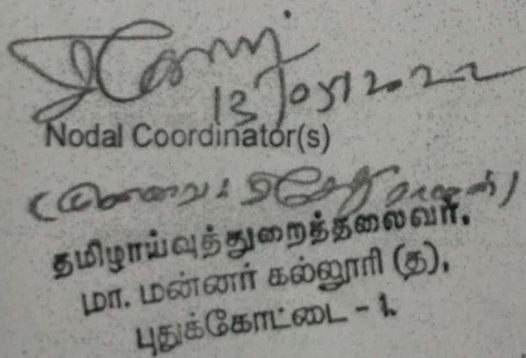 13/05/2022
Nodal Coordinator(s)
தமிழாய்வுத்துறைத்தலைவர்,
மா. மன்னர் கல்லூரி (த),
புதுக்கோட்டை - 1.